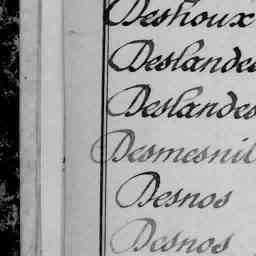 Deshoux
Deslandes
Deslandes
Desmesnil
Desnos
Desnos